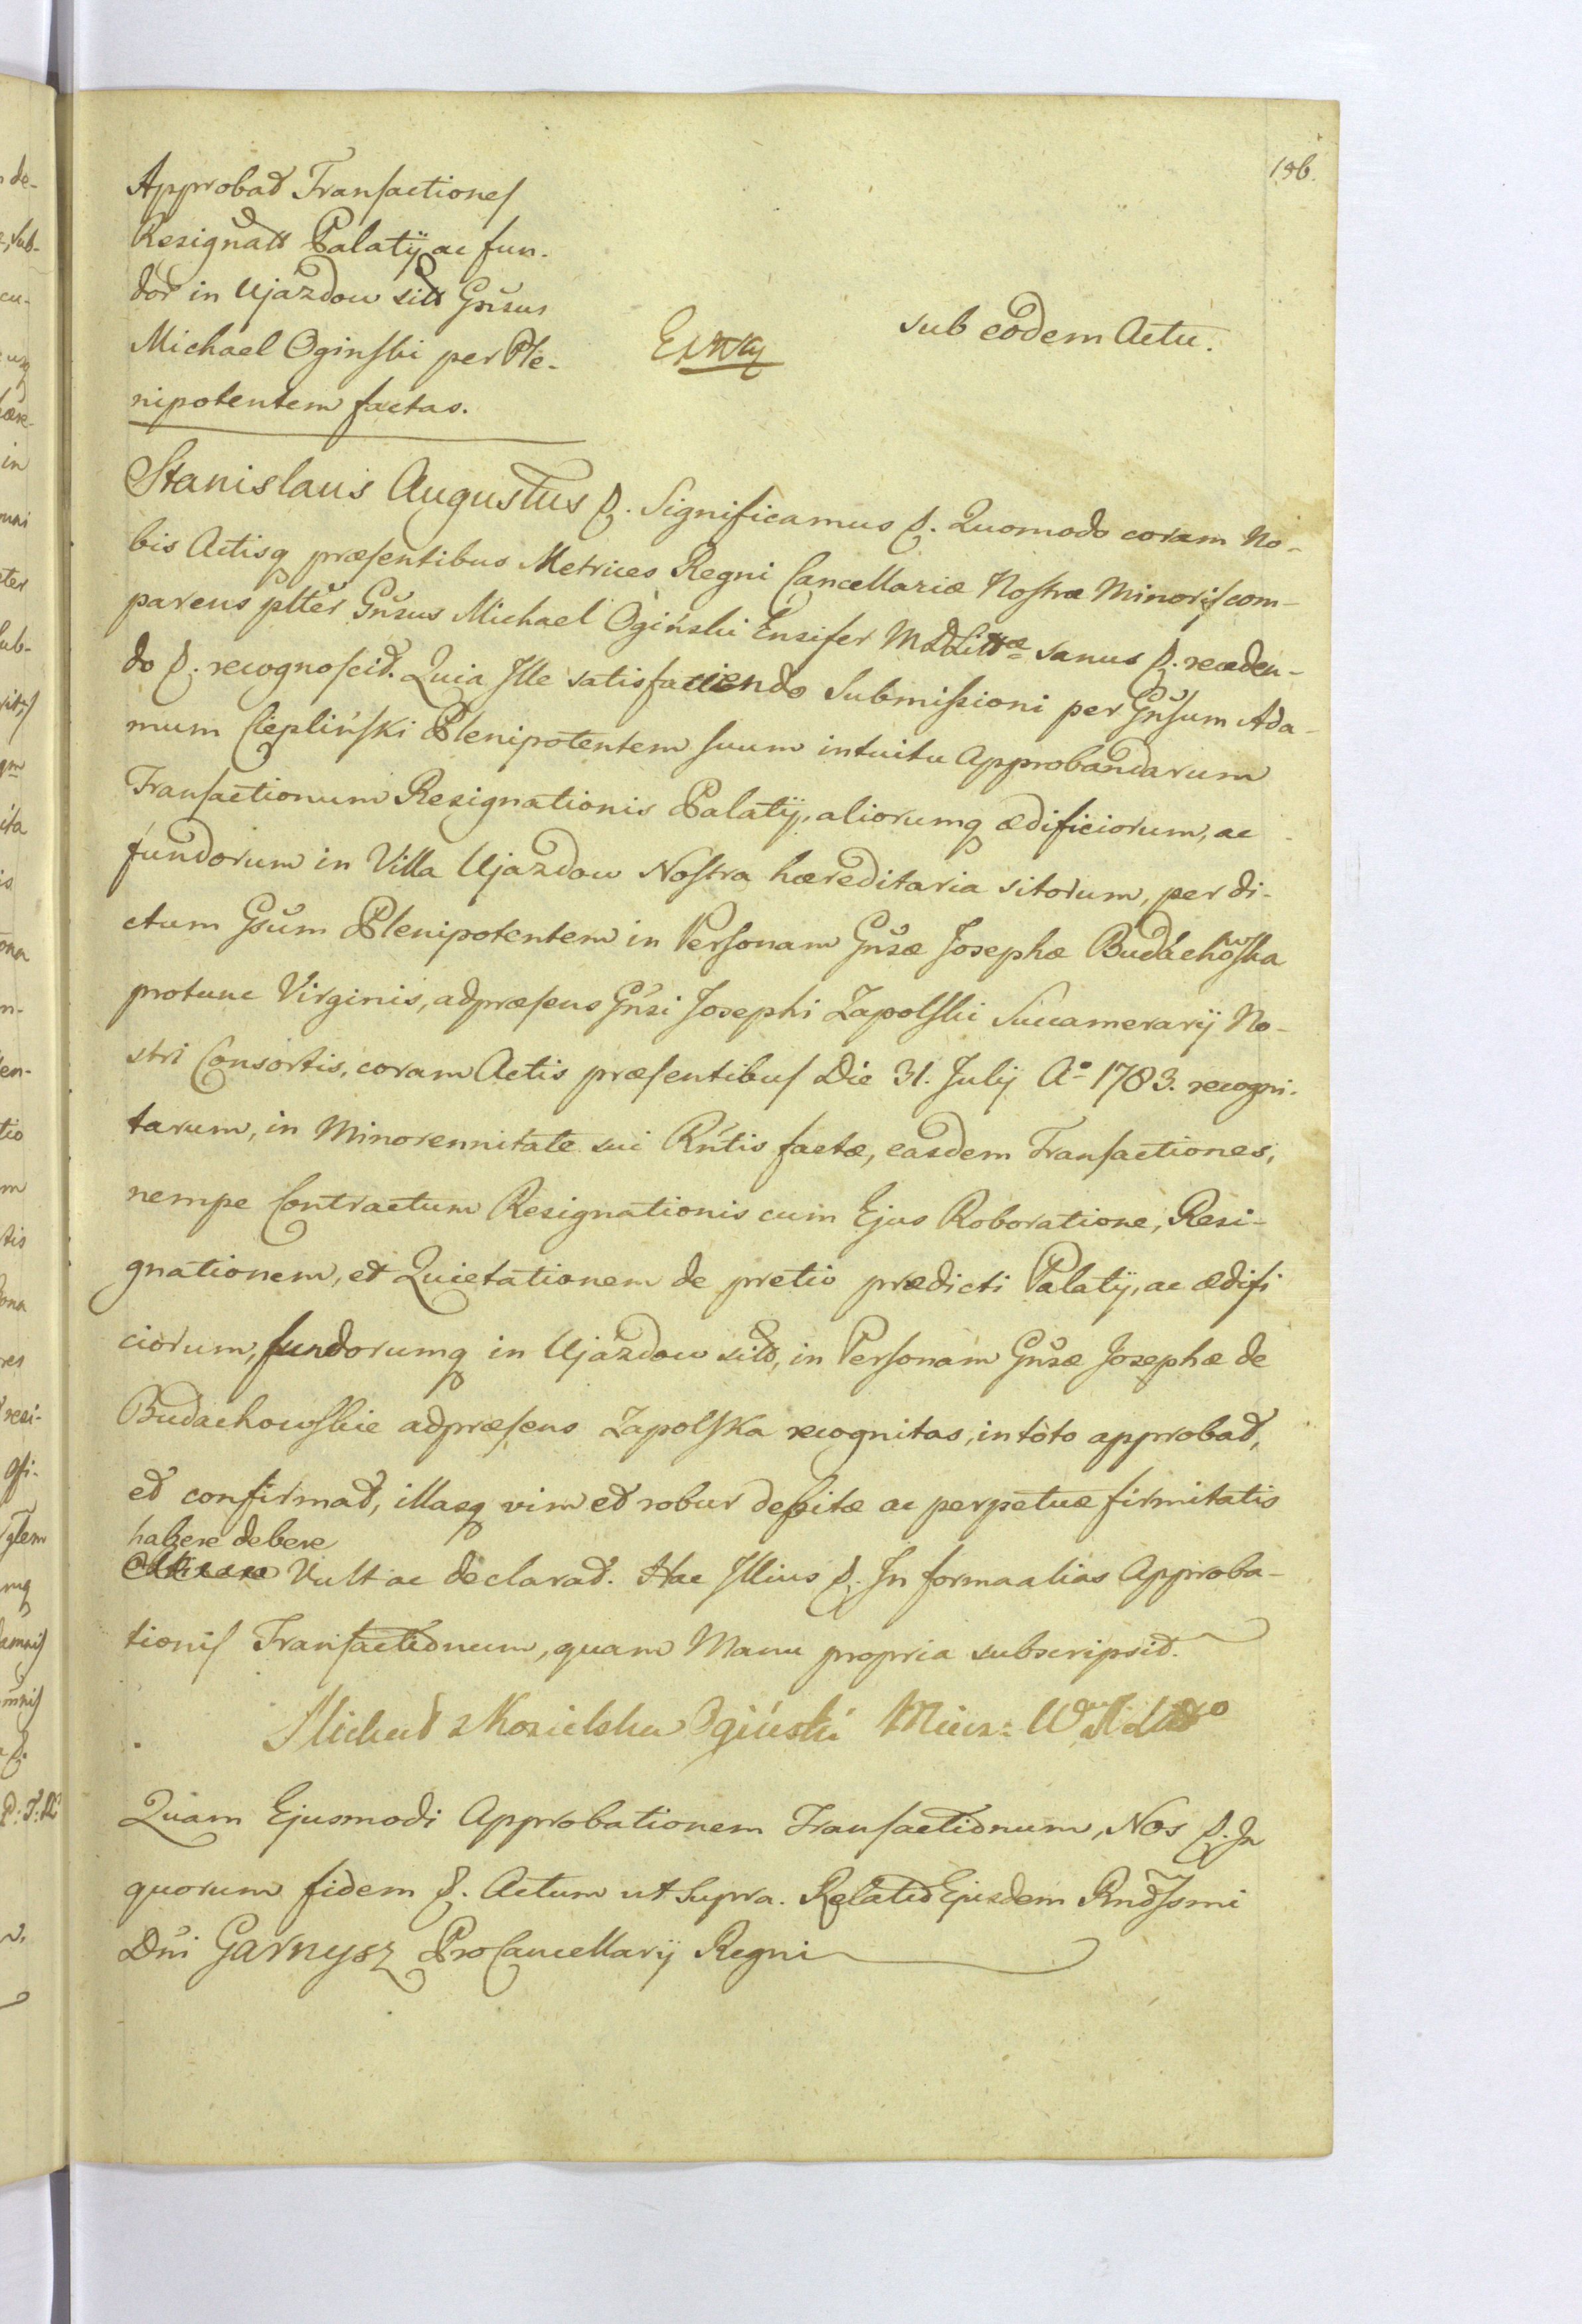 196.
Approbat Transactiones
Resignatt Palatij ac fun-
dor in Ujazdow sitt Gnsus
Michael Oginski per Ple-
nipotentem factas.
sub eodem Actu.
Stanislaus Augustus &. Significamus &. Quomodo coram No-
bis Actisq præsentibus Metrices Regni Cancellariæ Nostræ Minoris com-
parens pltter Gnsus Michael Ogiński Ensifer MDLittæ sanus &. receden-
do &. recognoscit. Quia Ille satisfaciendo Submissioni per Gnsum Ada-
mum Ciepliński Plenipotentem suum intuitu Approbandarum
Transactionum Resignationis Palatij, aliorumq ædificiorum, ac
fundorum in Villa Ujazdow Nostra hæreditaria sitorum, per di-
ctum Gsum Plenipotentem in Personam Gnsæ Josephæ Budachowska
protunc Virginis, adpræsens Gnsi Josephi Zapolski Succamerarij No-
stri Consortis, coram Actis præsentibus Die 31. Julij Ao 1783. recogni-
tarum, in Minorennitate sui Rntis factæ, easdem Transactiones,
nempe Contractum Resignationis cum Ejus Roboratione, Resi-
gnationem, et Quietationem de pretio prædicti Palatij, ac ædifi
ciorum, fundorumq in Ujazdow sitt, in Personam Gnsæ Josephæ de
Budachowskie adpræsens Zapolska recognitas, in toto approbat,
et confirmat, illasq vim et robur debitæ ac perpetuæ firmitatis
habere debere
Vult ac declarat. Hac Illius &. In forma alias Approba-
tionis Transactionum, quam Manu propria subscripsit.
Michał z Kozielska Ogiński Miecz: W X Litto
Quam Ejusmodi Approbationem Transactionum, Nos &. In
quorum fidem &. Actum ut Supra. Relatio Ejusdem RndIsmi
Dni Garnysz ProCancellarij Regni